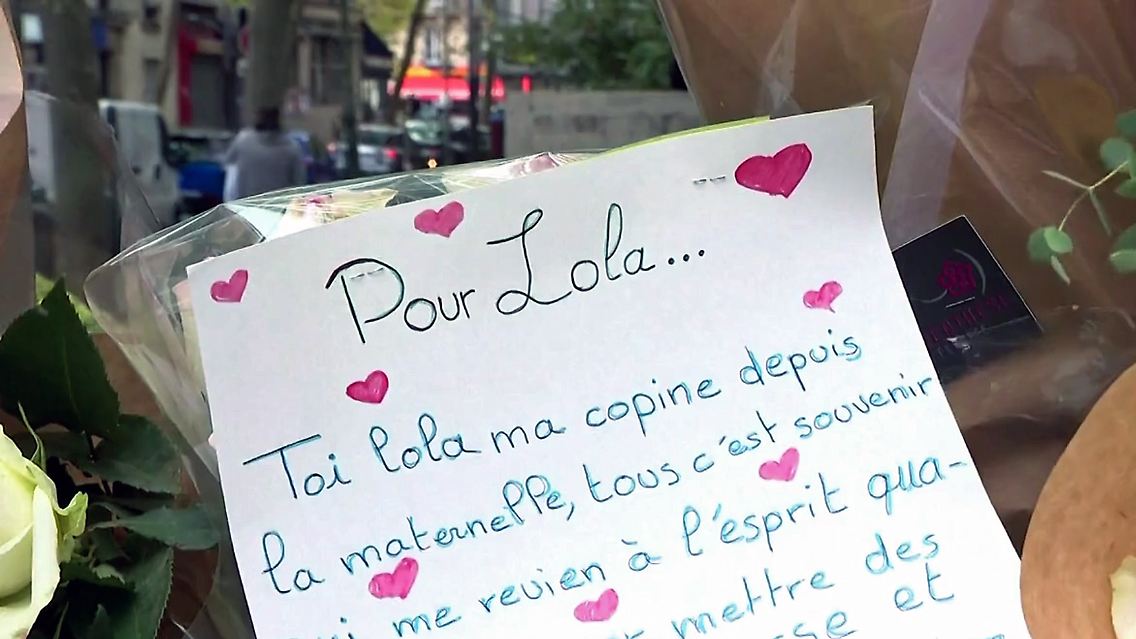 Pour Lola...
Toi lola ma copine depuis
la maternelle, tous c'est souvenir
qui me revien à l'esprit qua-
mettre des
et